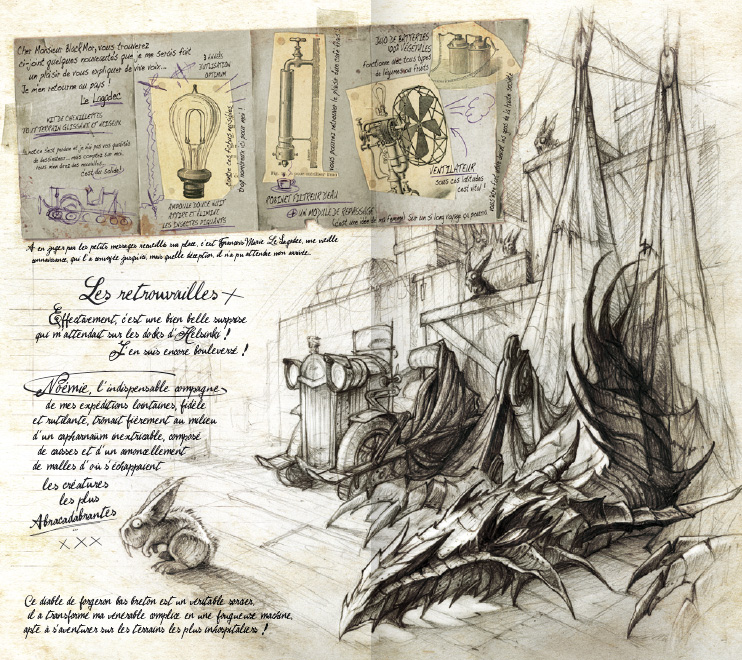 Cher Monsieur Black'Mor, vous trouverez
ci-joint quelques nouveautés que je me serais fait
un plaisir de vous expliquer de vive voix...
Je m'en retourne au pays !
Le Lagadec
KIT DE CHENILLETTES
TOUT TERRAIN GLISSANT ET NEIGEUX
3 unités
D'UTILISATION
OPTIMUM
AMPOULE DOUCE NUIT
ATTIRE ET ÉLIMINE
LES INSECTES PIQUANTS
ROBINET FILTREUR D'EAU
UN MODULE DE REPASSAGE
(c'est une idée de ma femme) Sur un si long voyage ça pourrait
DUO DE BATTERIES
100% VÉGÉTALES
Fonctionne avec tous types
de légumes ou fruits
VENTILATEUR
sous ces latitudes
c'est vital !
A en juger par les petits messages recueillis sur place, c'est François-Marie Le Lagadec, une vieille
connaissance, qui l'a convoyée jusqu'ici, mais quelle déception, il n'a pu attendre mon arrivée...
Les retrouvailles
Effectivement, c'est une bien belle surprise
qui m'attendait sur les docks d'Helsinki !
J'en suis encore bouleversé !
Noémie, l'indispensable compagne
de mes expéditions lointaines, fidèle
et rutilante, trônait fièrement au milieu
d'un capharnaüm inextricable, composé
de caisses et d'un amoncellement
de malles d'où s'échappaient
les créatures
les plus
Abracadabrantes
...
xxx
Ce diable de forgeron bas breton est un véritable sorcier,
il a transformé ma vénérable complice en une fougueuse machine,
apte à s'aventurer sur les terrains les plus inhospitaliers !